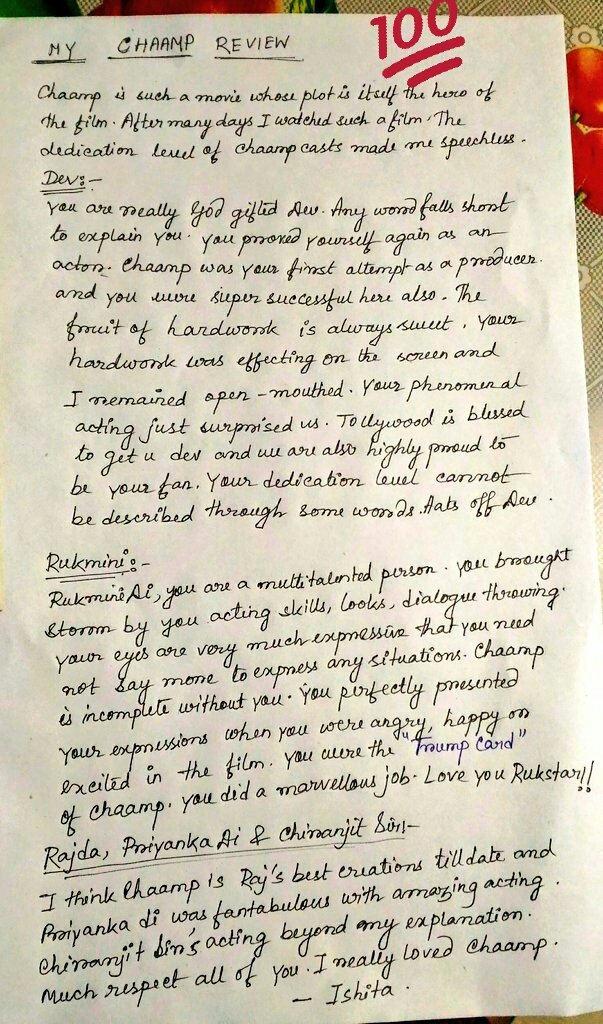 MY CHAAMP REVIEW
100
Chaamp is such a movie whose plot is itself the hero of
the film. After many days I watched such a film. The
dedication level of chaamp casts made me speechless.
Dev:-
you are really God gifted Dev. Any word falls short
to explain you. you proved yourself again as an
actor. Chaamp was your first attempt as a producer.
and you were super successful here also. The
fruit of hardwork is always sweet. your
hardwork was effecting on the screen and
I remained open-mouthed. Your phenomenal
acting just surprised us. Tollywood is blessed
to get u dev and we are also highly proud to
be your fan. Your dedication level cannot
be described through some words. Hats off Dev.
Rukmini:-
Rukmini Di, you are a multitalented person. you brought
storm by you acting skills, looks, dialogue throwing.
your eyes are very much expressive that you need
not say more to express any situations. Chaamp
is incomplete without you. you perfectly presented
your expressions when you were angry, happy or
excited in the film. you were the "Trump Card"
of chaamp. you did a marvellous job. Love you Rukstar!!
Rajda, Priyanka Di & Chiranjit Sir:-
I think Chaamp is Raj's best creations till date and
Priyanka di was fantabulous with amazing acting.
Chiranjit Sir's acting beyond my explanation.
Much respect all of you. I really loved Chaamp.
- Ishita.